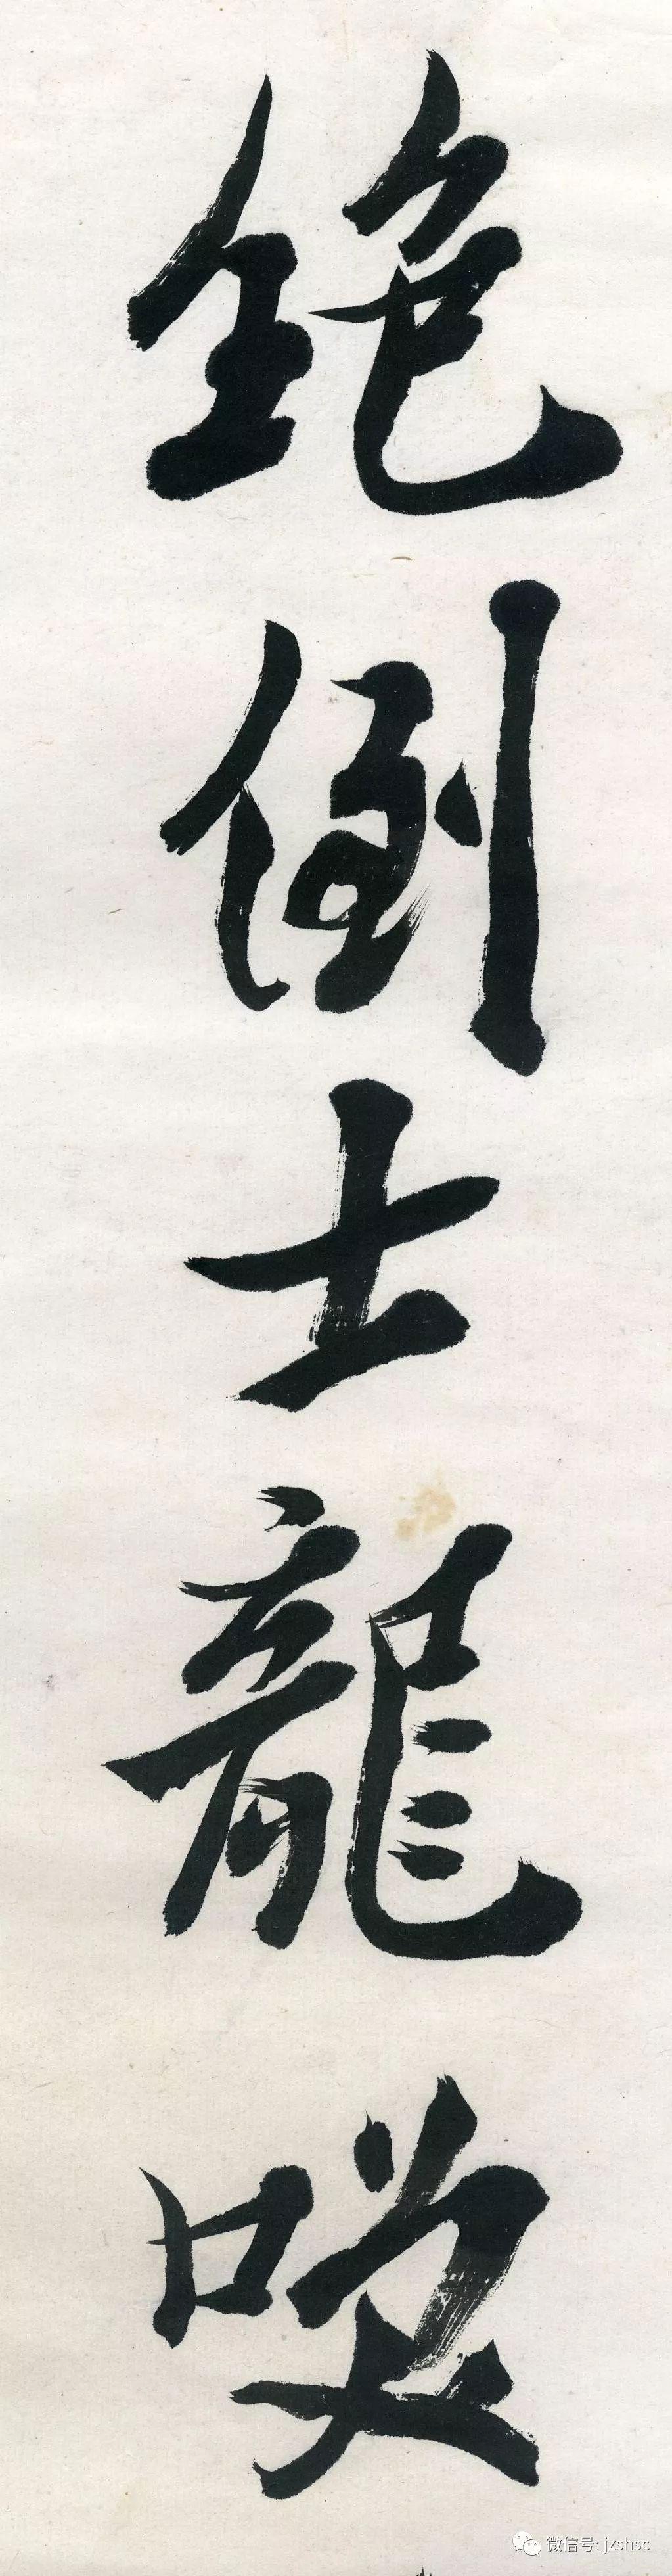 絶
倒
士
龍
咲
微信号: jzshsc